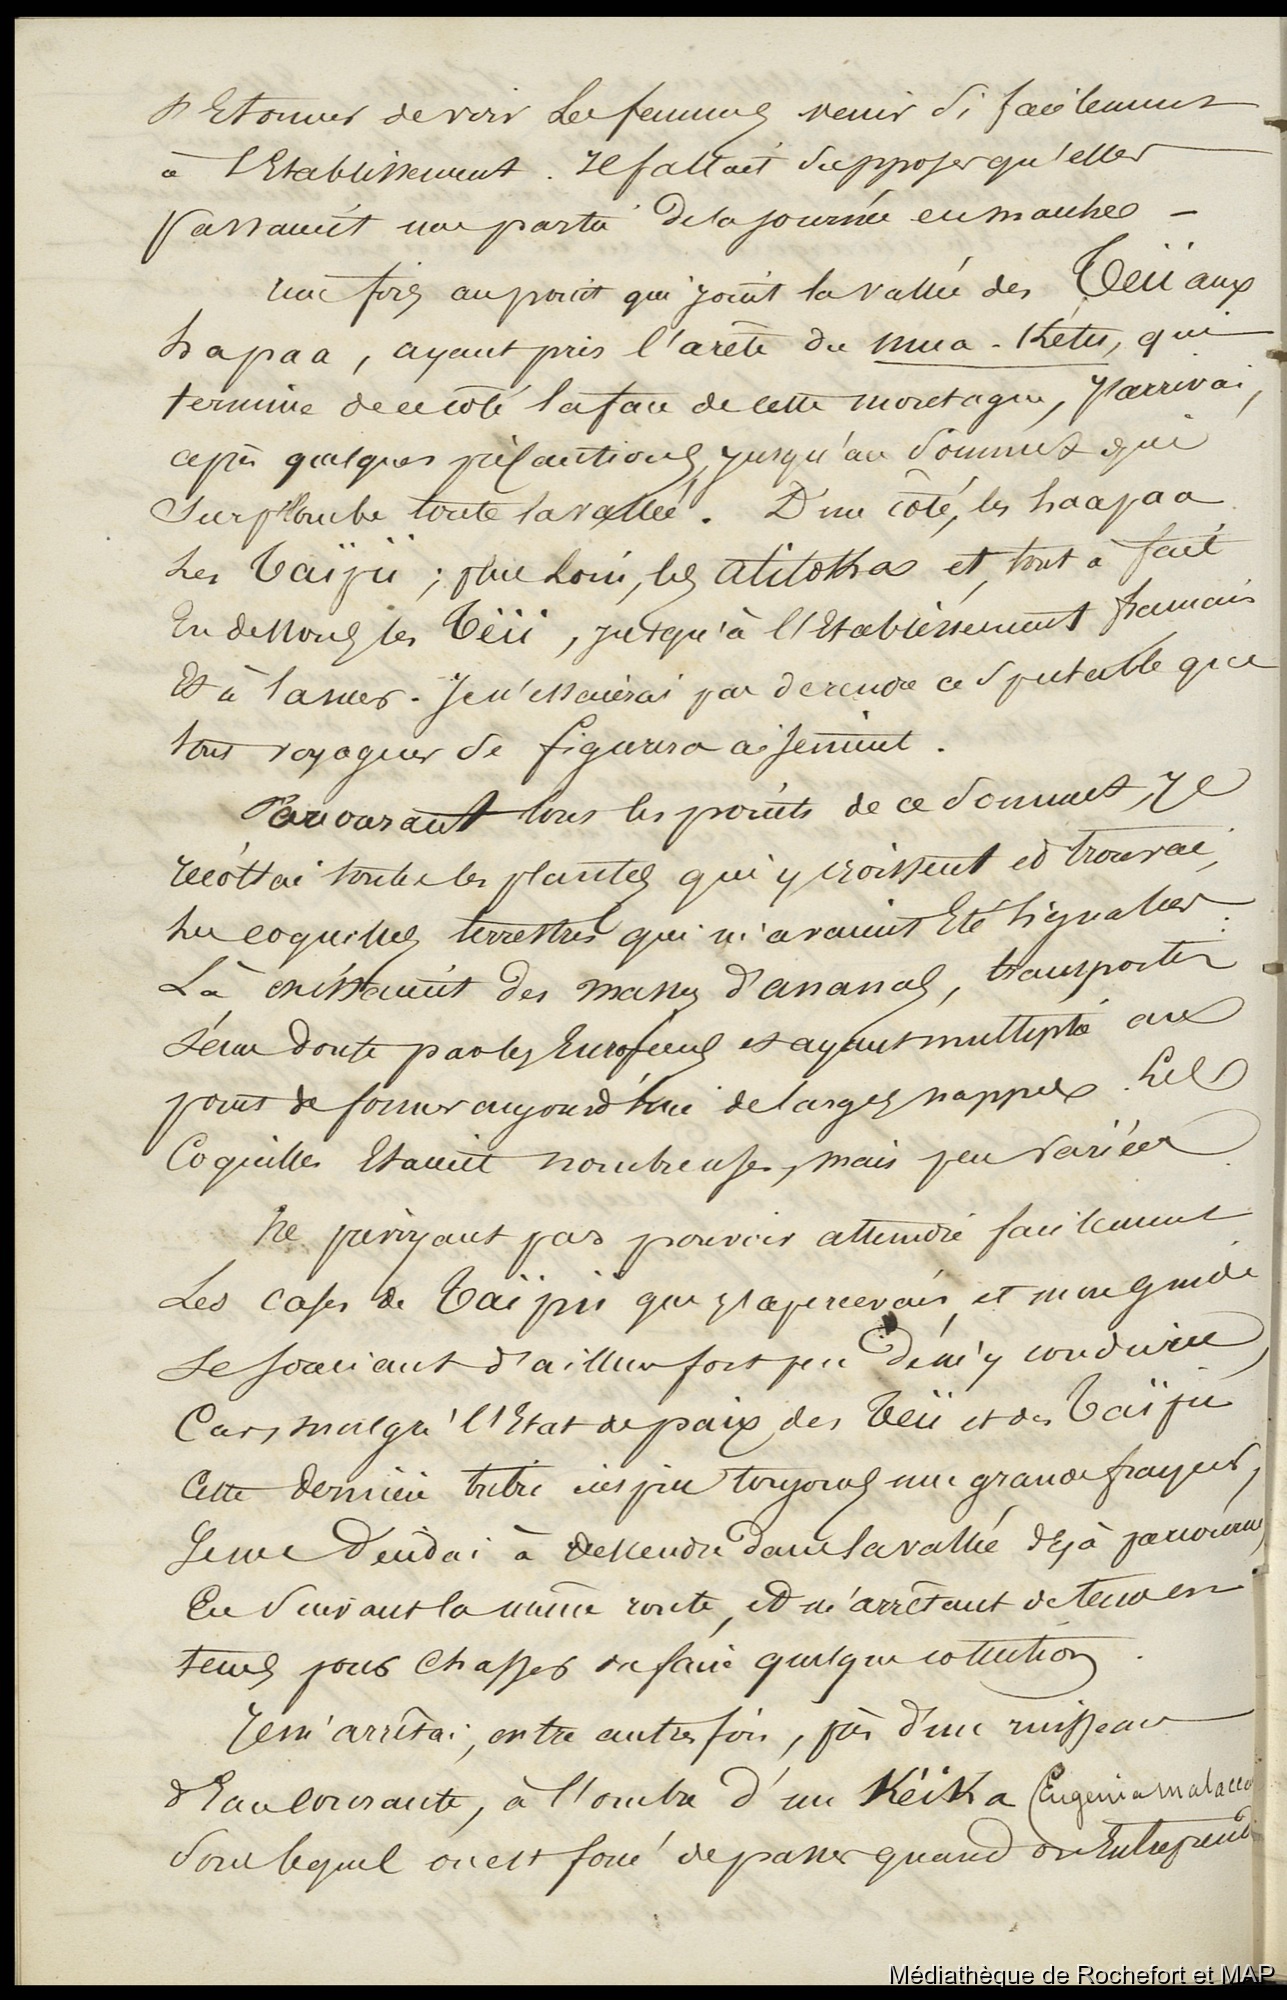 s'Etonner de voir les femmes venir si facilement
à l'Etablissement. Il fallait supposer qu'elles
passaient une partie de la journée en marche –
une fois au point qui joint la vallée des Teïi aux
hapaa, ayant pris l'arète du mua-Kétu, qui
termine de ce coté la face de cette montagne, j'arrivai,
après quelques précautions, jusqu'au sommet qui
surplombe toute la vallée. D'un côté, les haapaa
les Taïpii ; plus loin, les atitokas et, tout à fait
En dessous les Teïi, jusqu'à l'Etablissement francais
Et à la mer. Je n'essaierai pas de rendre ce spectacle que
tout voyageur se figurera aisement.
Parcourant tous les points de ce sommet, je
récoltai toutes les plantes qui y croissent et trouvai
les coquilles terrestres qui m'avaient Eté signalées.
Là croissaient des masses d'ananas, transportés
sans doute par les Européens et ayant multiplié au
point de former aujourd'hui de larges nappes. Les
Coquilles Etaient nombreuses, mais peu variées
Ne prévoyant pas pouvoir atteindre facilement
Les cases de Taïpii que j'apercevais, et mon guide
se souciant d'ailleurs fort peu de m'y conduire,
Car, malgré l'Etat de paix des Teïi et des Taïpii
Cette dernière tribu inspire toujours une grande frayeur,
Je me décidai à descendre dans la vallée déjà parcourue,
En suivant la même route, et m'arrêtant de tems en
tems pour chasser ou faire quelque collection.
Je m'arrêtai, entre autres fois, près d'un ruisseau
d'Eau courante, à l'ombre d'un Kéika (Eugenia malacca
sous lequel on est forcé de passer quand on Entreprend